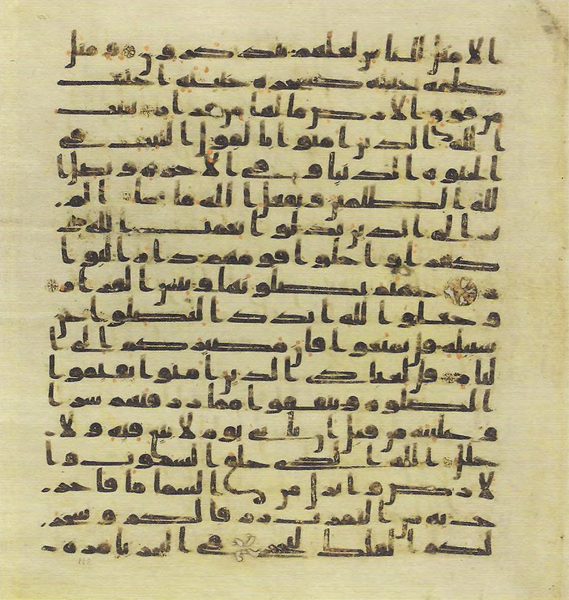 الامثل للناس لعلهم يتذكرون ومثل
كلمة خبيثة كشجرة خبيثة اجتثت
من فوق الارض ما لها من قرار يثبت
الله الذين امنوا بالقول الثبت في
الحيوة الدنيا وفي الاخرة ويضل ا
لله الظلمين ويفعل الله ما يشا الم
تر الى الذين بدلوا نعمت الله
كفرا واحلوا قومهم دار البوا
ر جهنم يصلونها وبئس القرار
وجعلوا لله اندادا ليضلوا عن
سبيله قل تمتعوا فان مصيركم الى ا
لنار قل لعبادي الذين امنوا يقيموا
الصلوة وينفقوا مما رزقنهم سرا
وعلنية من قبل ان ياتي يوم لا بيع فيه ولا
خلل الله الذي خلق السموت وا
لارض وانزل من السما ما فاخر
ج به من الثمرت رزقا لكم وسخر
لكم الفلك لتجري في البحر بامره